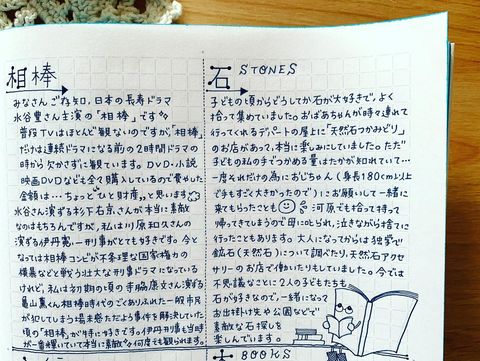 相棒
みなさんご存知、日本の長寿ドラマ
水谷豊さん主演の「相棒」です
普段TVはほとんど観ないのですが「相棒」
だけは連続ドラマになる前の2時間ドラマの
時から欠かさずに観ています。DVD・小説
映画DVDなども全て購入しているので費やした
金額は…ちょっとひと財産。。と思います
水谷さん演ずる杉下右京さんが本当に素敵
なのはもちろんですが、私は川原和久さんの
演ずる伊丹憲一刑事がとても好きです。今と
なっては相棒コンビが不条理な国家権力の
横暴などと戦う壮大な刑事ドラマになっている
けれど、私は初期の頃の寺脇康文さん演ずる
亀山薫くん相棒時代のごとありふれた一般市民
が犯してしまう場末感ただよう事件を解決していた
頃の「相棒」が特に好きです。伊丹刑事も当時
が一番輝いていて本当に素敵。何度でも観られます。
石 STONES
子どもの頃からどうしてか石が大好きで、よく
拾って集めていました。おばあちゃんが時々連れて
行ってくれるデパートの屋上に「天然石つかみどり」
のお店があって、本当に楽しみにしていました。ただ
子どもの私の手でつかめる量はたかが知れていて…
一度それだけの為におじちゃん(身長180cm以上
で手もすごく大きかったので)にお願いして一緒に
来てもらったことも 河原でも拾って持って
帰ってきてしまうので母に叱られ、泣きながら捨てに
行ったこともあります。大人になってからは独学で
鉱石(天然石)について調べたり、天然石アクセ
サリーのお店で働いたりもしていました。今では
不思議なことに2人の子どもたちも
石が好きなので、一緒になって
お出掛け先や公園などで
素敵な石探しを
楽しんでいます。
BOOKS